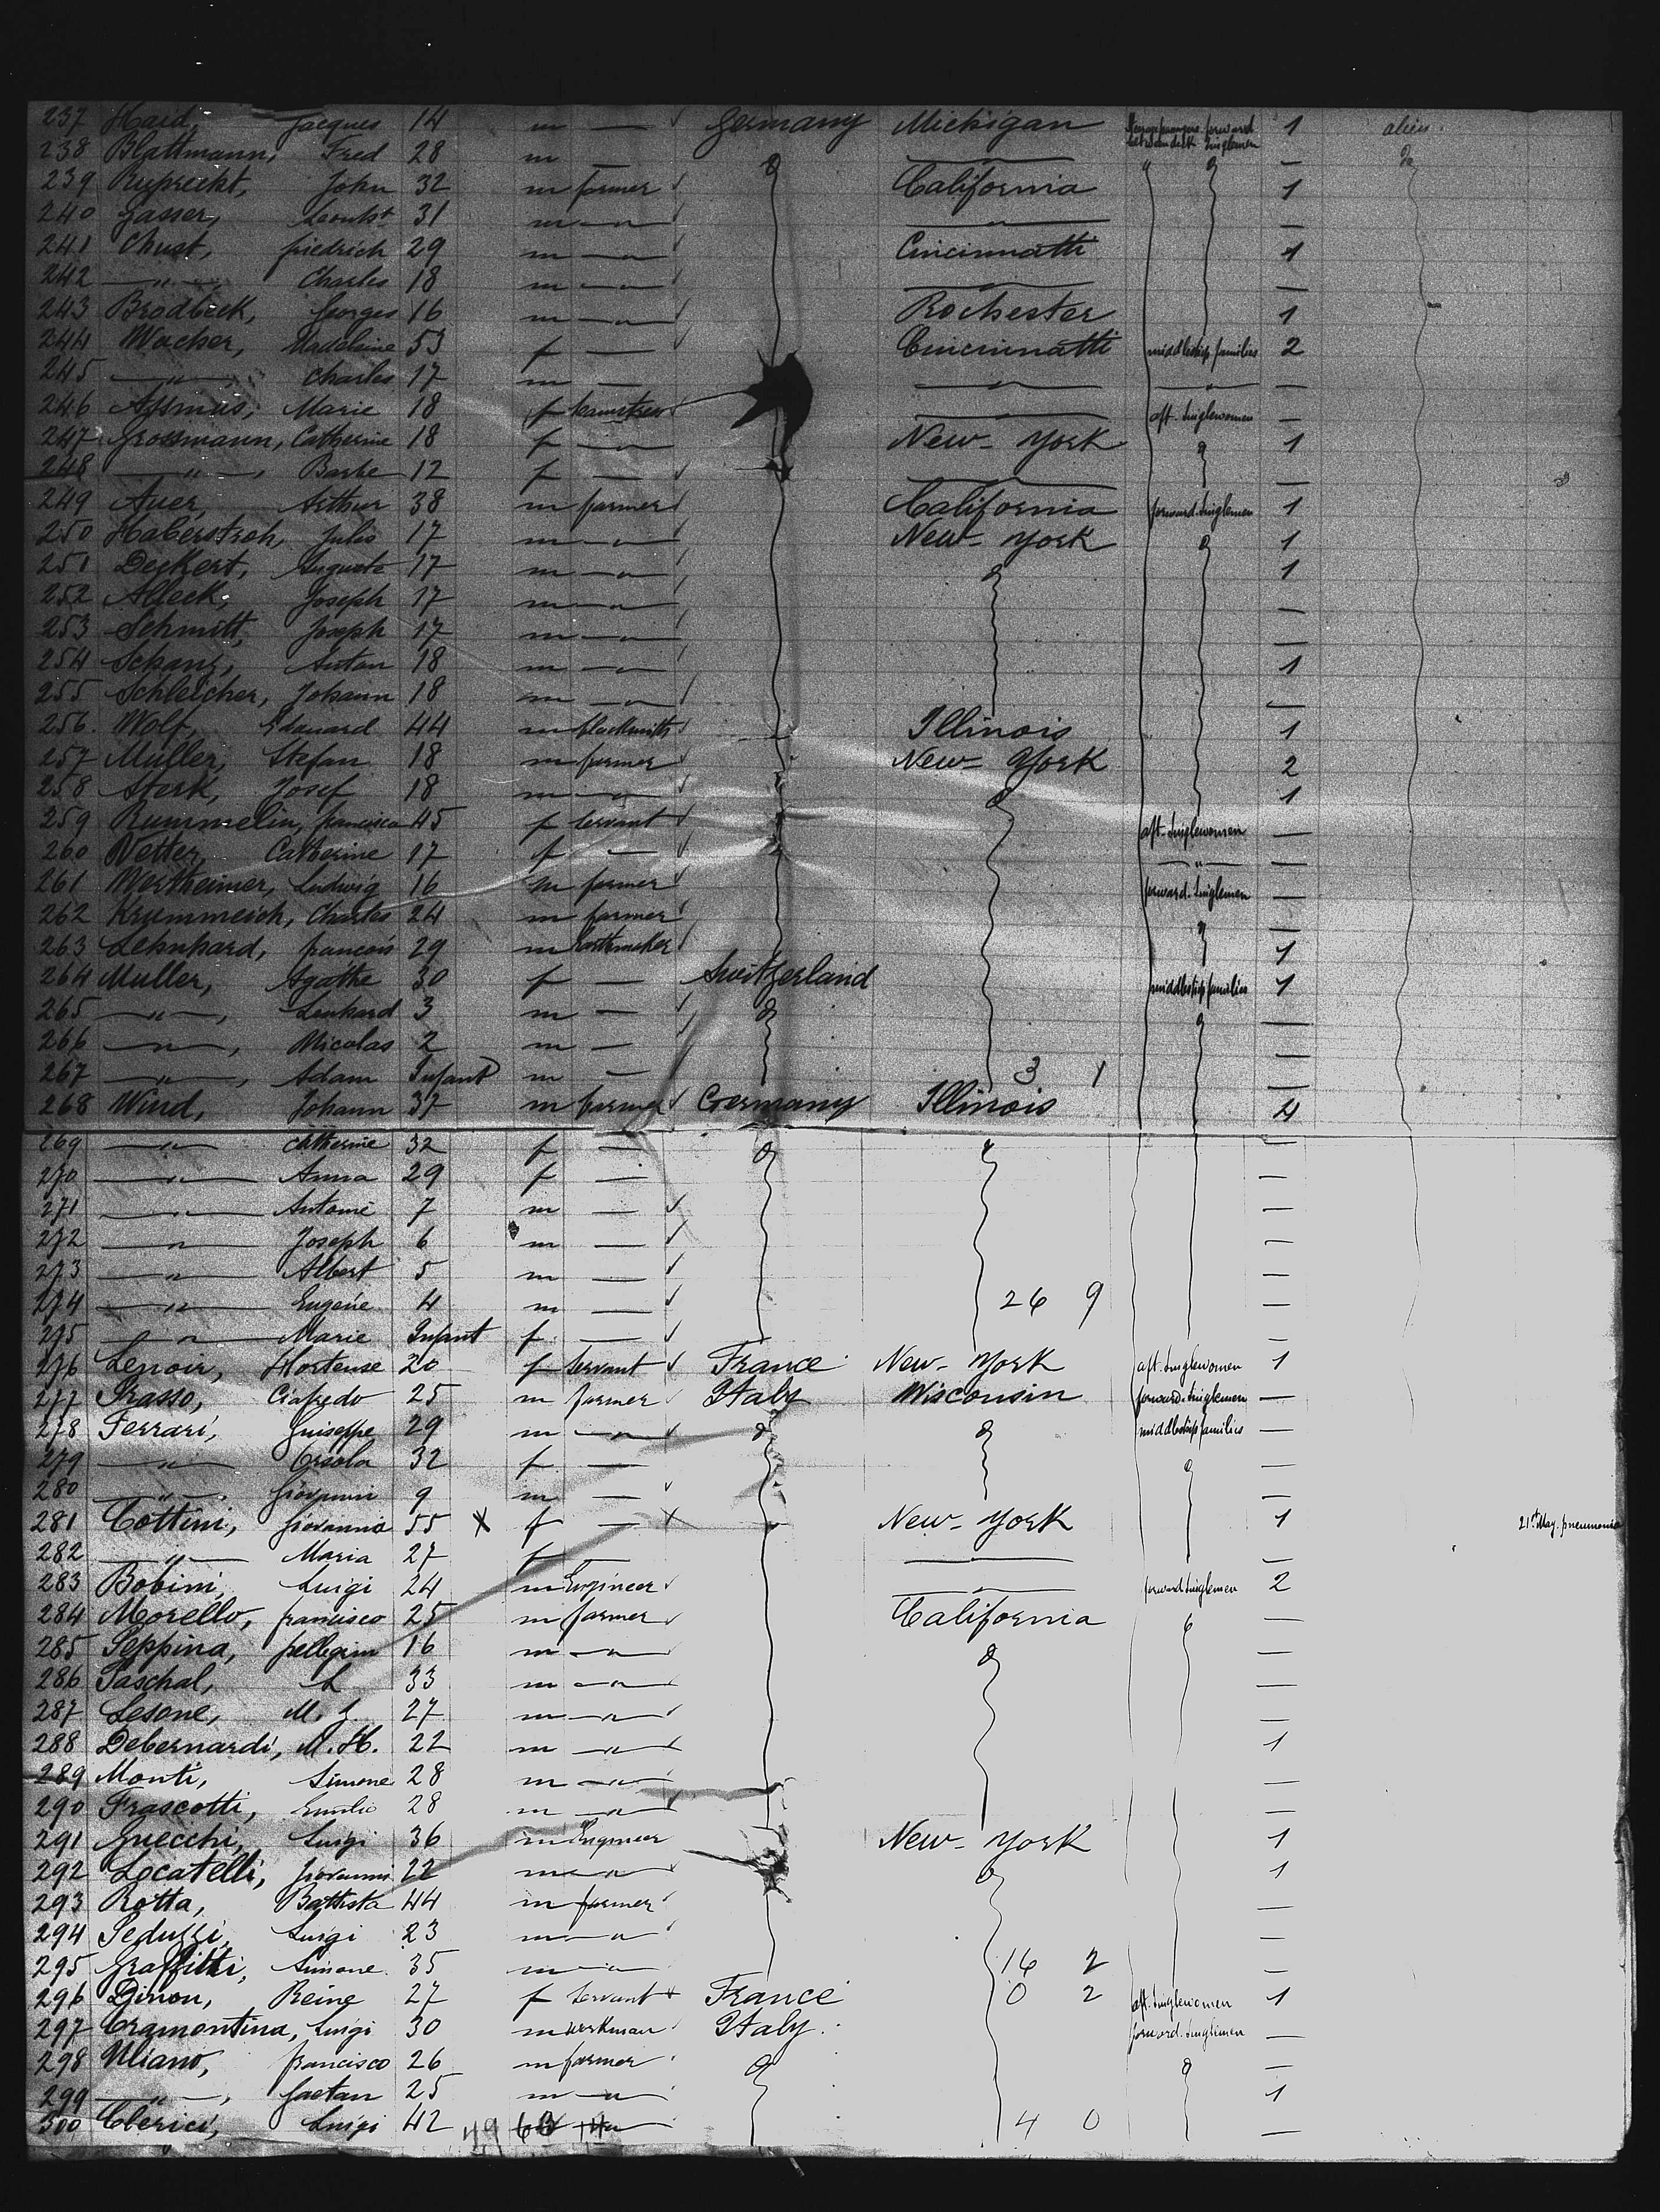 237 Haid, Jacques 14 m — Germany Michigan forward Singlemen 1 alien
238 Blattmann, Fred 28 m — —"— — do
239 Ruprecht, John 32 m farmer California 1
240 Gasser, 31 m —"— —"— —
241 Chust, friedrich 29 m —"— Cincinnatti 1
242 —"— Charles 18 m —"— —"— —
243 Brodbeck, Georges 16 m —"— Rochester 1
244 Wacher, Madeleine 53 f — Cincinnatti middleship families 2
245 —"— Charles 17 m — —"— —"— —
246 Assmus, Marie 18 f —"— aft. Singlewomen —
247 Grossmann, Catherine 18 f —"— New-York 1
248 —"—, Barbe 12 f — —"— —
249 Auer, Arthur 38 m farmer California forward. Singlemen 1
250 Haberstroh, Julis 17 m —"— New-York 1
251 Deckert, Auguste 17 m —"— 1
252 Alleck, Joseph 17 m —"— —
253 Schmitt, Joseph 17 m —"— —
254 Schanz, Anton 18 m —"— 1
255 Schleicher, Johann 18 m —"— —
256. Wolf, Edouard 44 m blacksmith Illinois 1
257 Muller, Stefan 18 m farmer New-York 2
258 Stark, Josef 18 m —"— 1
259 Rummelin, francisca 45 f Servant aft. Singlewomen —
260 Netter, Catherine 17 f — —"— —
261 Wertheimer, Ludwig 16 m farmer forward. Singlemen —
262 Krummeich, Charles 24 m farmer —
263 Lehnhard, francois 29 m 1
264 Muller, Agathe 30 f — Switzerland middleship families 1
265 —"—, Lenhard 3 m — —
266 —"—, Nicolas 2 m — —
267 —"—, Adam Infant m — 3 1 —
268 Wind, Johann 37 m farmer Germany Illinois 4
269 —"— Catherine 32 f — —
270 —"— Anna 29 f — —
271 —"— Antoine 7 m — —
272 —"— Joseph 6 m — —
273 —"— Albert 5 m — —
274 —"— Eugene 4 m — 26 9 —
275 —"— Marie Infant f. — —
276 Lenoir, Hortense 20 f Servant France New-York aft. Singlewomen 1
277 Prasso, Ciafredo 25 m farmer Italy Wisconsin forward. Singlemen —
278 Ferrari, Guiseppe 29 m —"— middleship families —
279 —"— Orsola 32 f — —
280 —"—, Giovanni 9 m — —
281 Cottini, Giovannia 55 X f — X New-York 1 21st May. pneumonia
282 —"— Maria 27 f — —"— —
283 Bobini, Luigi 24 m Engineer —"— forward Singlemen 2
284 Morello, francisco 25 m farmer California —
285 Peppina, pellegrin 16 m —"— —
286 Paschal, L 33 m —"— —
287 Lesone, M. J. 27 m —"— —
288 Debernardi, M. H. 22 m —"— 1
289 Monti, Simone 28 m —"— —
290 Frascotti, Emilio 28 m —"— —
291 Guecchi, Luigi 36 m Engineer New-York 1
292 Locatelli, Giovanni 22 m —"— 1
293 Rotta, Battista 44 m farmer —
294 Peduzzi, Luigi 23 m —"— —
295 Graffitti, Simone. 35 m —"— 16 2 —
296 Dinon, Reine 27 f Servant France 0 2 aft. Singlewomen 1
297 Cramontina, Luigi 30 m workman Italy. forward. Singlemen —
298 Uliano, francisco 26 m farmer —
299 —"—, Gaetan 25 m —"— 1
300 Clerici, Luigi 42 49 63 4 0 —